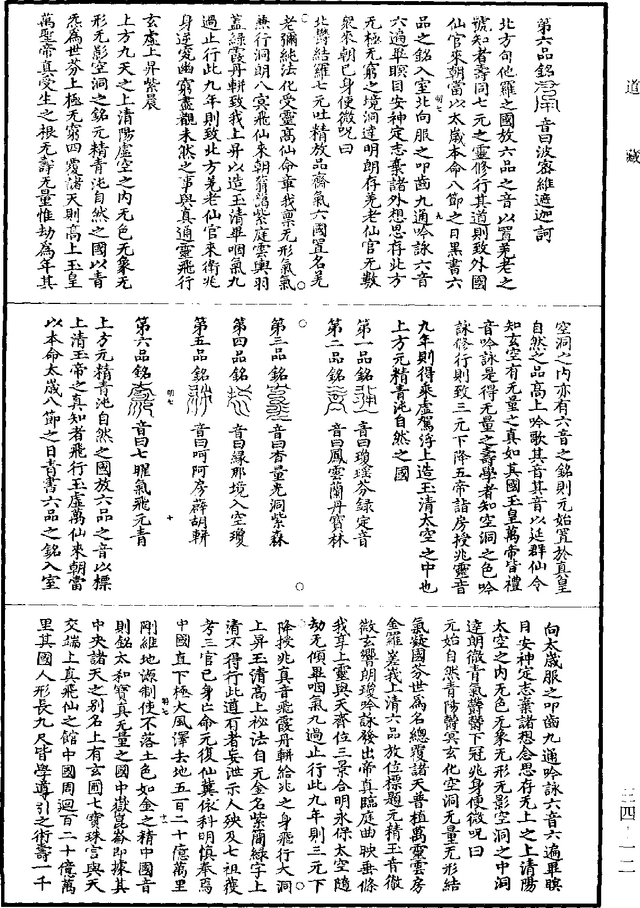 道藏
第六品銘 音曰波宻維遮迦訶
北方句他羅之國放六品之音以置羌老之
號知者壽同七元之靈修行其道則致外國
仙官來朝當以太歲本命八節之日黑書六
品之銘入室北向服之叩齒九通吟詠六音
六過畢瞑目安神定志棄諸外想思存此方
无極无窮之境洞達明朗存羌老仙官无數
衆來朝已身便微呪曰
北欝結羅七元吐精放品齋氣六國置名羌
老彌純法化受靈高仙命章我禀无形氣氣
兼行洞朗八冥飛仙來朝蓊藹紫庭雲輿羽
蓋緑霞丹軿致我上昇以造玉清畢咽氣九
過止行此九年則致北方羌老仙官來衛兆
身逆究幽窮盡觀未然之事與真通靈飛行
玄虛上昇紫晨
上方九天之上清陽虛空之内无色无象无
形无影空洞之銘元精青沌自然之國以青
炁為世芬上極无窮四覆諸天則高上玉皇
萬聖帝真受生之根无壽无量惟劫為年其
空洞之内亦有六音之銘則元始置於真皇
自然之品高上吟歌其音其音以延群仙令
知玄空有无量之真如其國玉皇萬帝皆禮
音吟詠是得无量之壽學者知空洞之色吟
詠修行則致三元下降五帝詣房授兆靈音
九年則得乘虛駕浮上造玉清太空之中也
上方元精青沌自然之國
第一品銘 音曰瓊瑶芬録定音
第二品銘 音曰鳳雲蘭丹寶林
第三品銘 音曰杳量光洞紫森
第四品銘 音曰緑那境入空瓊
第五品銘 音曰呵阿房辟胡軿
第六品銘 音曰七曜氣飛元青
上方元精青沌自然之國放六品之音以標
上清玉帝之真知者飛行玉虛萬仙來朝當
以本命太歲八節之日青書六品之銘入室
向太歲服之叩齒九通吟詠六音六遍畢瞑
目安神定志棄諸想念思存无上之上清陽
太空之内无色无象无形无影空洞之中洞
達朗徹青氣欝欝下冠兆身便微呪曰
元始自然青陽欝冥玄化空洞无量无形結
氣凝國分世為名總覆諸天普植萬靈雲房
金羅嵳峩上清六品放位標題元精玉音徹
微玄響朗瓊吟詠發出帝真臨庭曲映垂條
我享上靈與天齊位三景合明永保太空隨
劫无傾畢咽氣九過止行此九年則三元下
降授兆真音飛霞丹軿給兆之身飛行大洞
上昇玉清高上祕法自无金名紫蘭緑字上
清不得行此道若者妄泄示人殃及七祖獲
考三官已身亡命元復仙冀依科明慎奉焉
中國直下極大風澤去地五百二十億萬里
剛維地源制使不落土色如金之精中國音
則銘太和寶真无量之國中嶽崑崙即據其
中央諸天之別名上有玄圃七寶珠宫與天
交端上真飛仙之館中國周迴百二十億萬
里其國人形長九尺皆學導引之術壽一千
三四·一一二